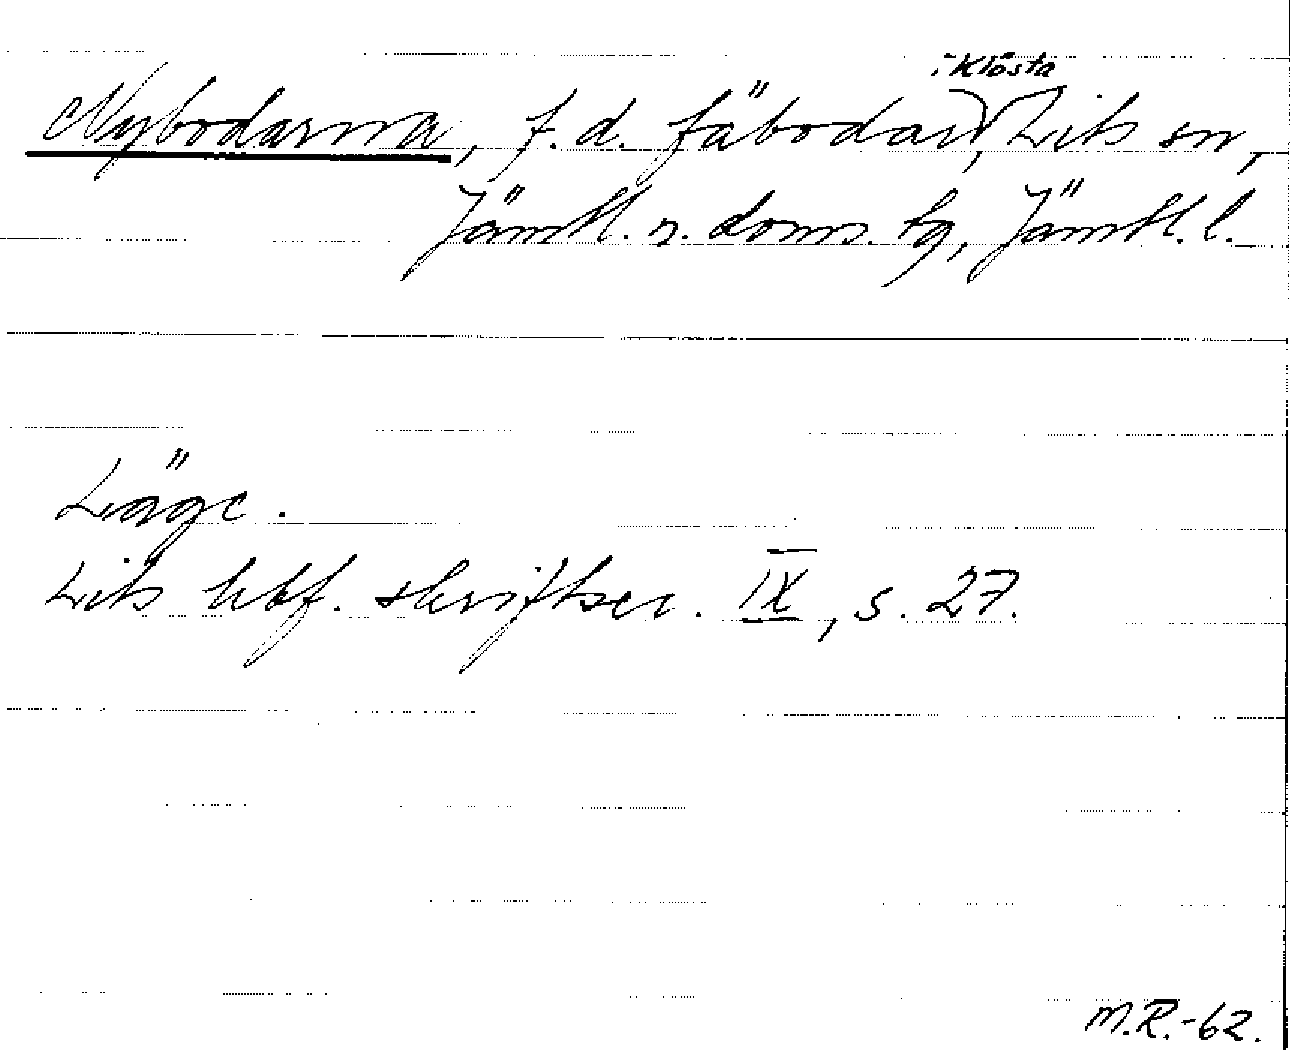 Nybodarna, f.d. fäbodar i Klösta, Lits sn,
Jämtl. n. doms. tg, Jämtl. l.
Läge.
Lits hbf. skriftser. IX, s. 27.
M.R.-62.